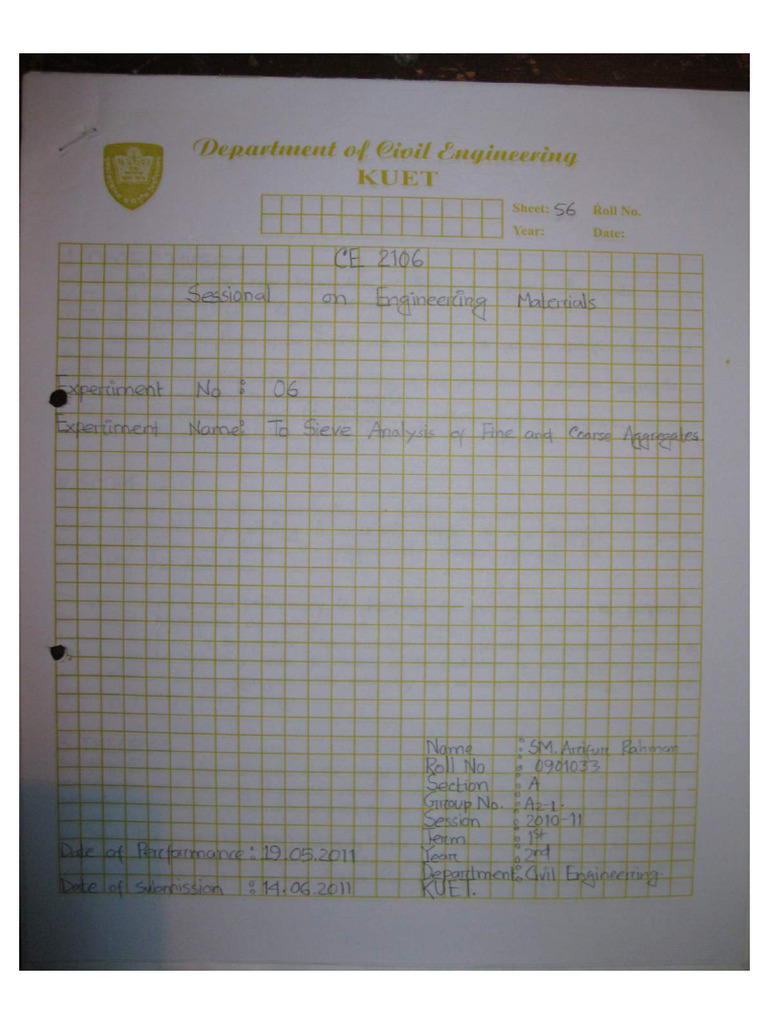 Department of Civil Engineering
KUET
Sheet: 56 Roll No.
Year: Date:
CE 2106
Sessional on Engineering Materials
Experiment No : 06
Experiment Name: To Sieve Analysis of Fine and Coarse Aggregates
Name : SM. Arifur Rahman
Roll No : 0901033
Section : A
Group No. : A2-1.
Session : 2010-11
Term : 1st
Year : 2nd
Department: Civil Engineering.
KUET.
Date of Performance: 19.05.2011
Date of Submission : 14.06.2011